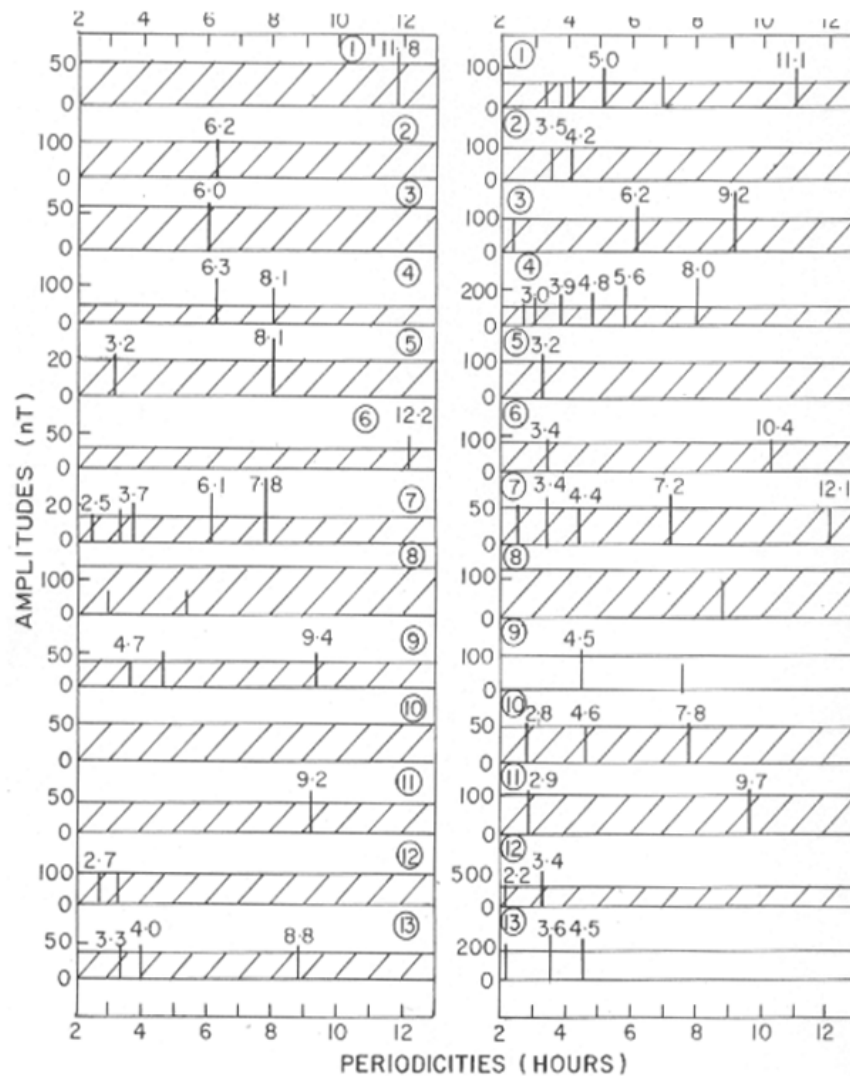 2 4 6 8 10 12
① 11·8
50
0
② 6·2
100
0
③ 6·0
50
0
④ 6·3 8·1
100
0
⑤ 3·2 8·1
20
0
⑥ 12·2
50
0
⑦ 2·5 3·7 6·1 7·8
20
0
⑧
100
0
⑨ 4·7 9·4
50
0
⑩
50
0
⑪ 9·2
50
0
⑫ 2·7
100
0
⑬ 3·3 4·0 8·8
50
0
2 4 6 8 10 12
AMPLITUDES (nT)
2 4 6 8 10 12
① 5·0 11·1
100
0
② 3·5 4·2
100
0
③ 6·2 9·2
100
0
④ 3·0 3·9 4·8 5·6 8·0
200
0
⑤ 3·2
100
0
⑥ 3·4 10·4
100
0
⑦ 3·4 4·4 7·2 12·1
50
0
⑧
100
0
⑨ 4·5
100
0
⑩ 2·8 4·6 7·8
50
0
⑪ 2·9 9·7
100
0
⑫ 2·2 3·4
500
0
⑬ 3·6 4·5
200
0
2 4 6 8 10 12
PERIODICITIES (HOURS)